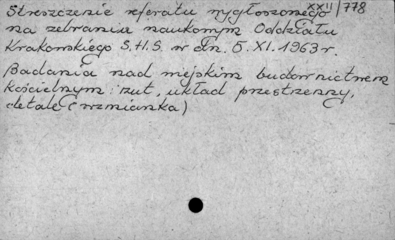 XXII/778
Streszczenie referatu wygłoszonego
na zebraniu naukowym Oddziału
Krakowskiego S.H.S. w dn. 5.XI.1963r.
Badania nad miejskim budownictwem
kościelnym: rzut, układ przestrzenny,
detale (wzmianka)